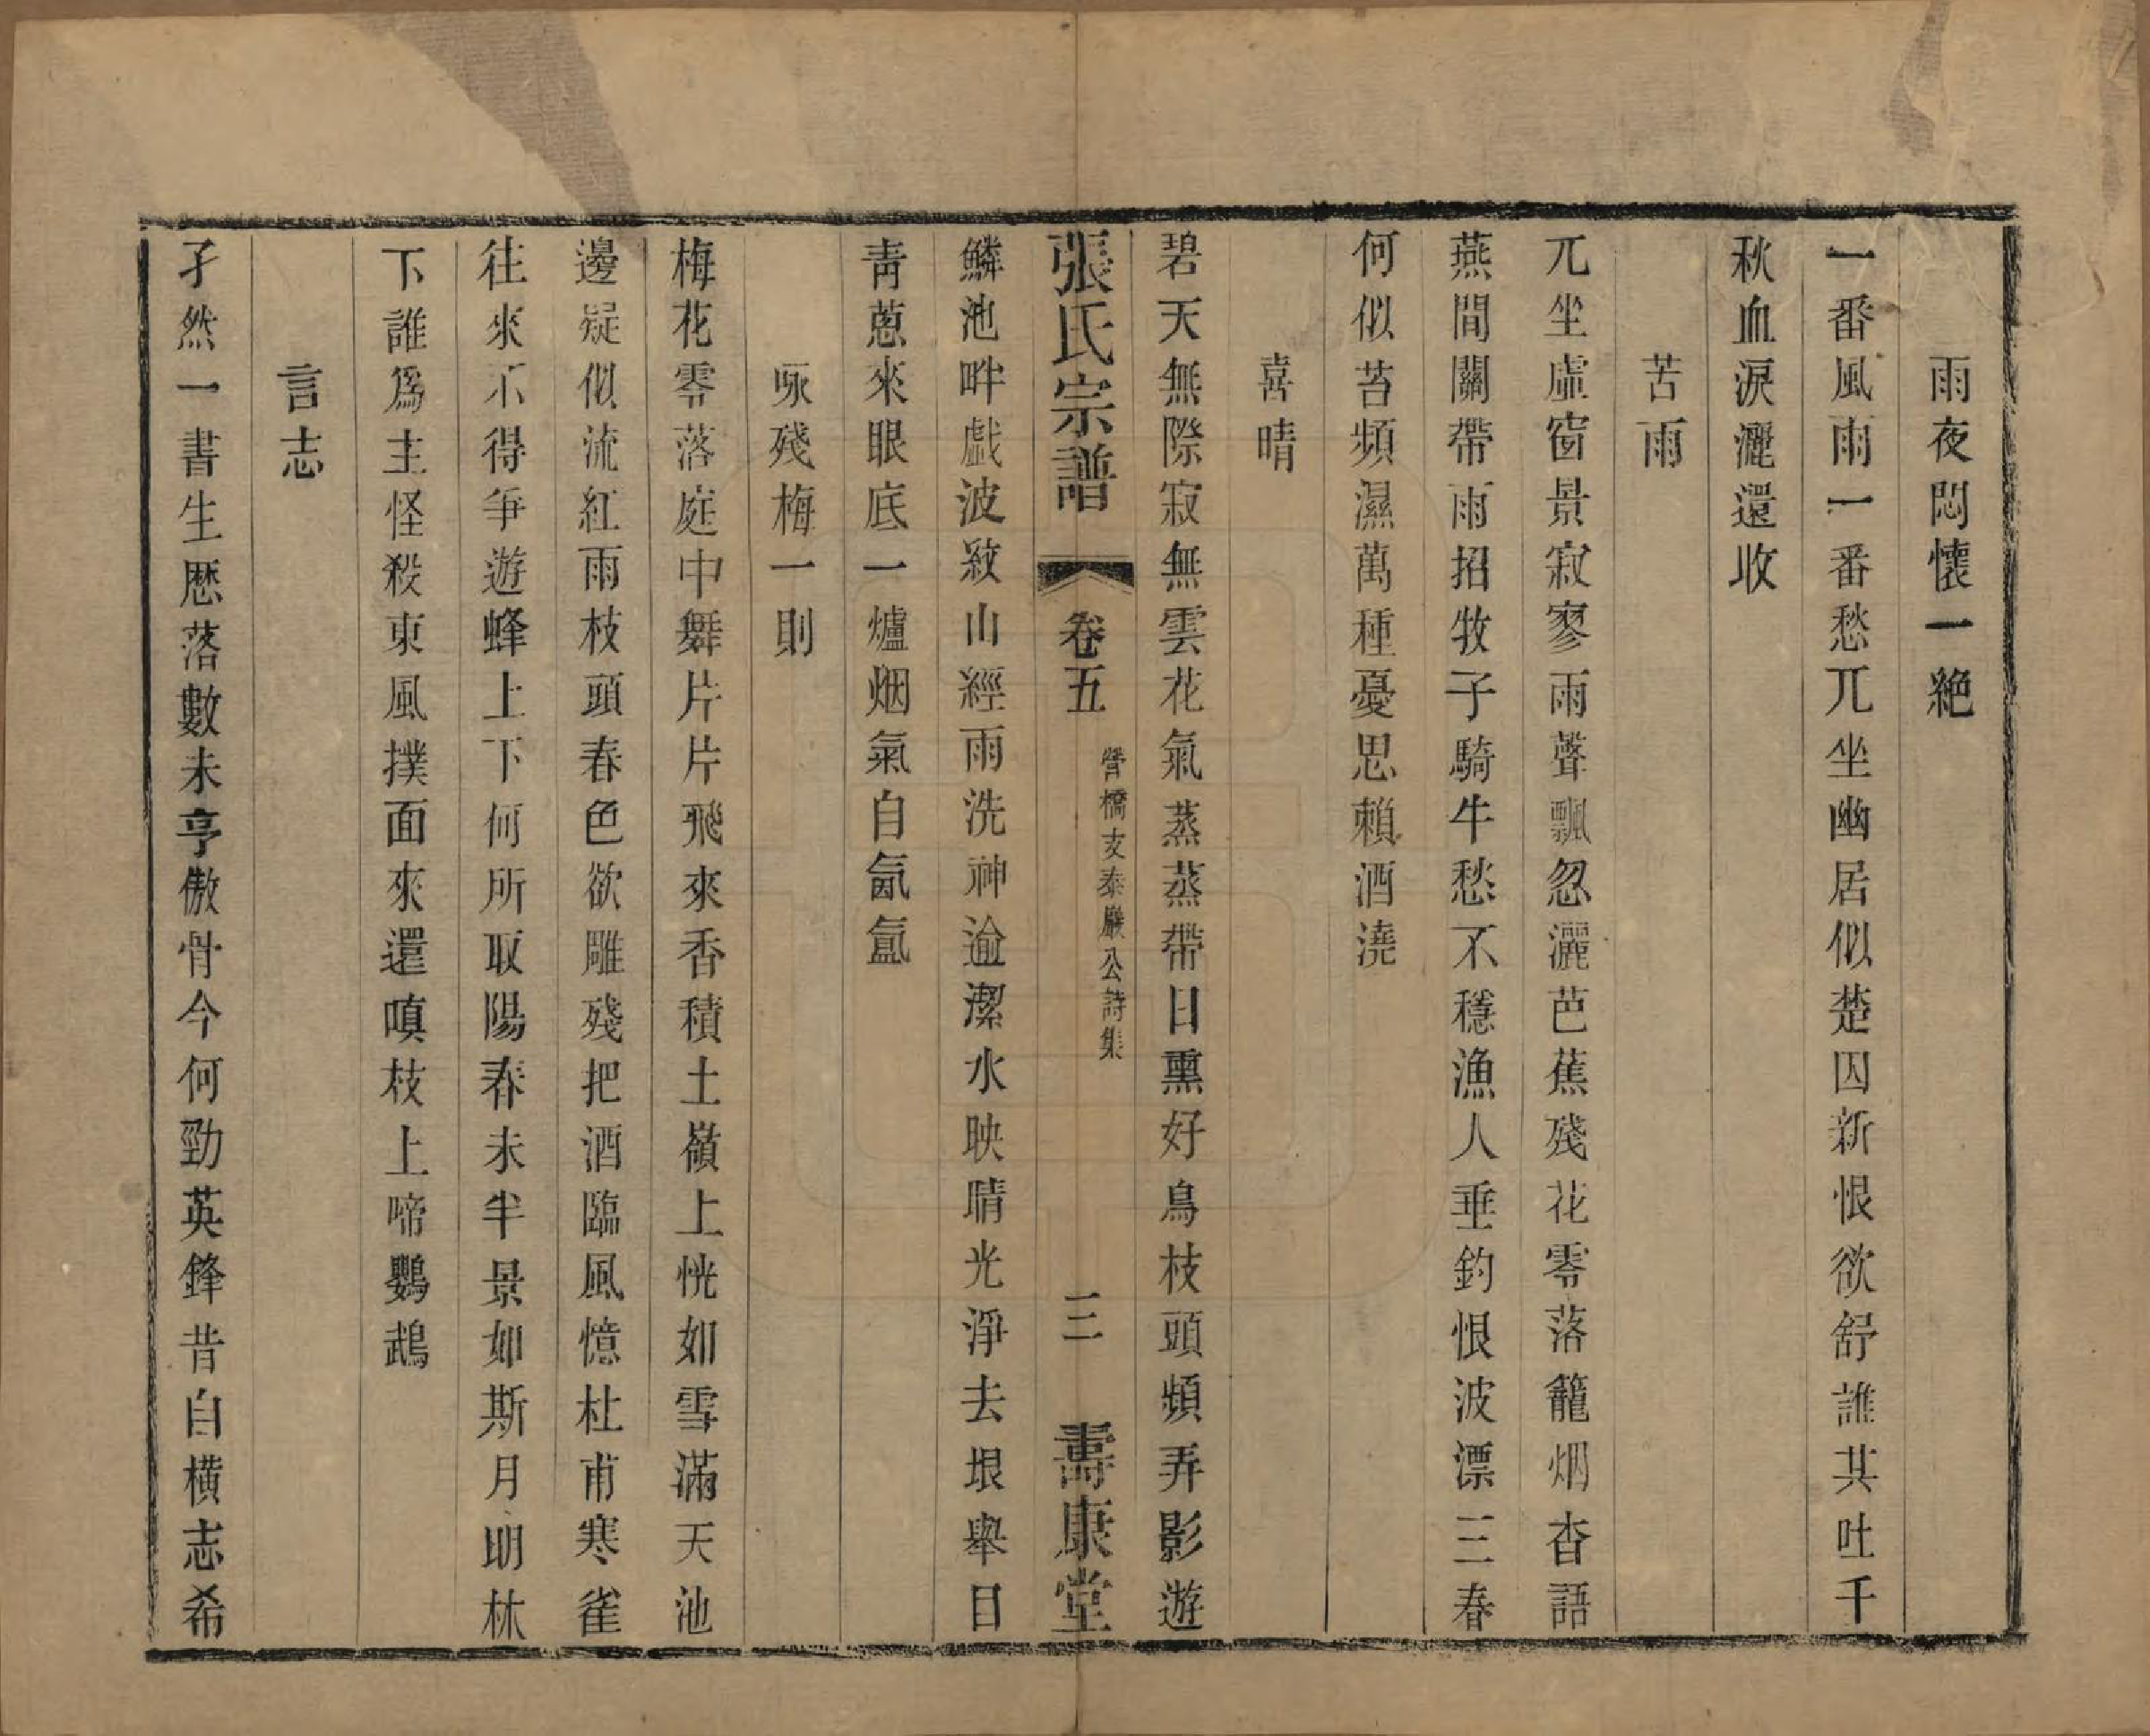 雨夜悶懷一絶
一番風雨一番愁兀坐幽居似楚囚新恨欲舒誰共吐千
秋血淚灑還收
苦雨
兀坐虛窗景寂寥雨聲飄忽灑芭蕉殘花零落籠烟杳語
燕間關帶雨招牧子騎牛愁不穩漁人垂釣恨波漂三春
何似苔頻濕萬種憂思賴酒澆
喜晴
碧天無際寂無雲花氣蒸蒸帶日熏好鳥枝頭頻弄影遊
張氏宗譜 卷五 營橋支泰巖公詩集 三 壽康堂
鱗池畔戲波紋山經雨洗神逾潔水映晴光淨去垠舉目
靑蔥來眼底一爐烟氣自氤氳
咏殘梅一則
梅花零落庭中舞片片飛來香積土嶺上恍如雪滿天池
邊疑似流紅雨枝頭春色欲雕殘把酒臨風憶杜甫寒雀
往來不得爭遊蜂上下何所取陽春未半景如斯月明林
下誰爲主怪殺東風撲面來還嗔枝上啼鸚鵡
言志
孑然一書生歷落數未亨傲骨今何勁英鋒昔自橫志希